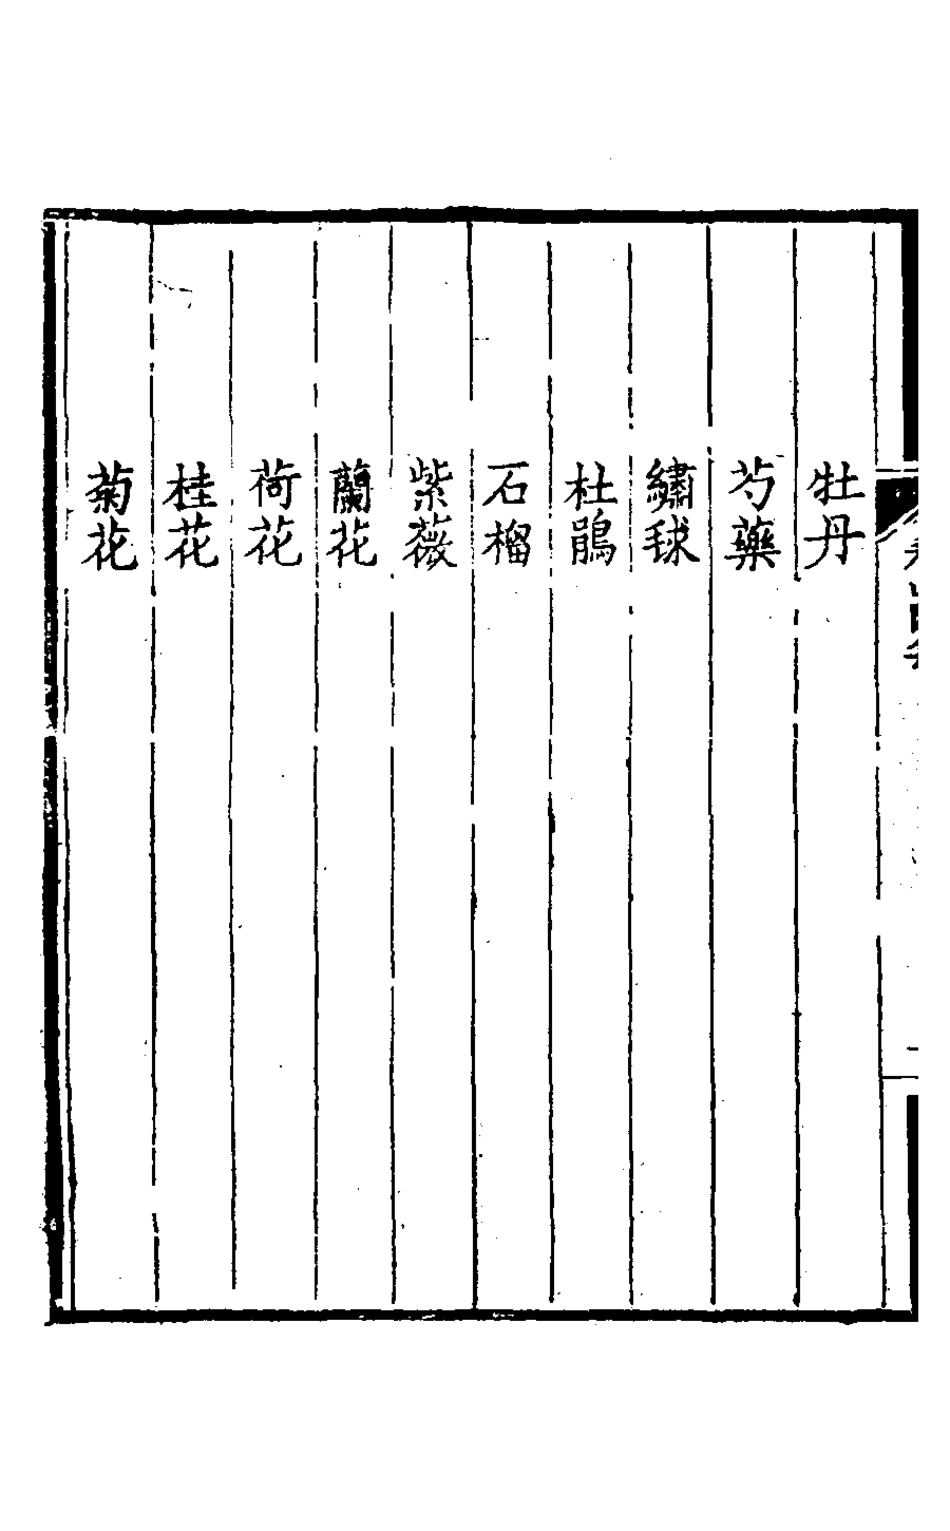 牡丹
芍藥
繡毬
杜鵑
石榴
紫薇
蘭花
荷花
桂花
菊花